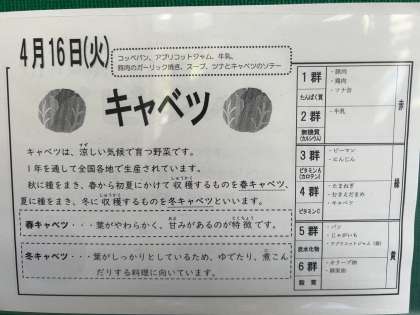 4月16日(火)
コッペパン、アプリコットジャム、牛乳、
豚肉のガーリック焼き、スープ、ツナとキャベツのソテー
キャベツ
キャベツは、涼しい気候で育つ野菜です。
1年を通して全国各地で生産されています。
秋に種をまき、春から初夏にかけて収穫するものを春キャベツ、
夏に種をまき、冬に収穫するものを冬キャベツといいます。
春キャベツ・・・葉がやわらかく、甘みがあるのが特徴です。
冬キャベツ・・・葉がしっかりとしているため、ゆでたり、煮こん
だりする料理に向いています。
1群
たんぱく質
・豚肉
・鶏肉
・ツナ缶
2群
無機質
(カルシウム)
・牛乳
赤
3群
ビタミンA
(カロテン)
・ピーマン
・にんじん
4群
ビタミンC
・たまねぎ
・キャベツ
緑
5群
炭水化物
・パン
・じゃがいも
・アプリコットジャム
6群
脂質
・オリーブ油
黄